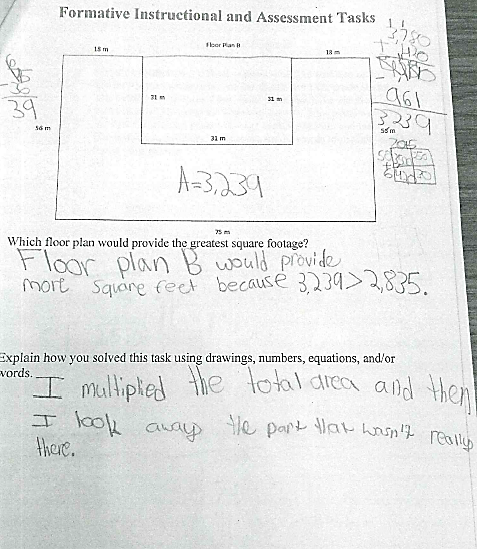 Formative Instructional and Assessment Tasks
Floor Plan B
18 m
18 m
31 m
31 m
31 m
56 m
56 m
75 m
- 36
39
1 1
3780
+ 420
- 961
3,239
A=3,239
Which floor plan would provide the greatest square footage?
Floor plan B would provide
more square feet because 3,239>2,835.
Explain how you solved this task using drawings, numbers, equations, and/or
words.
I multiplied the total area and then
I took away the part that wasn't really
there.